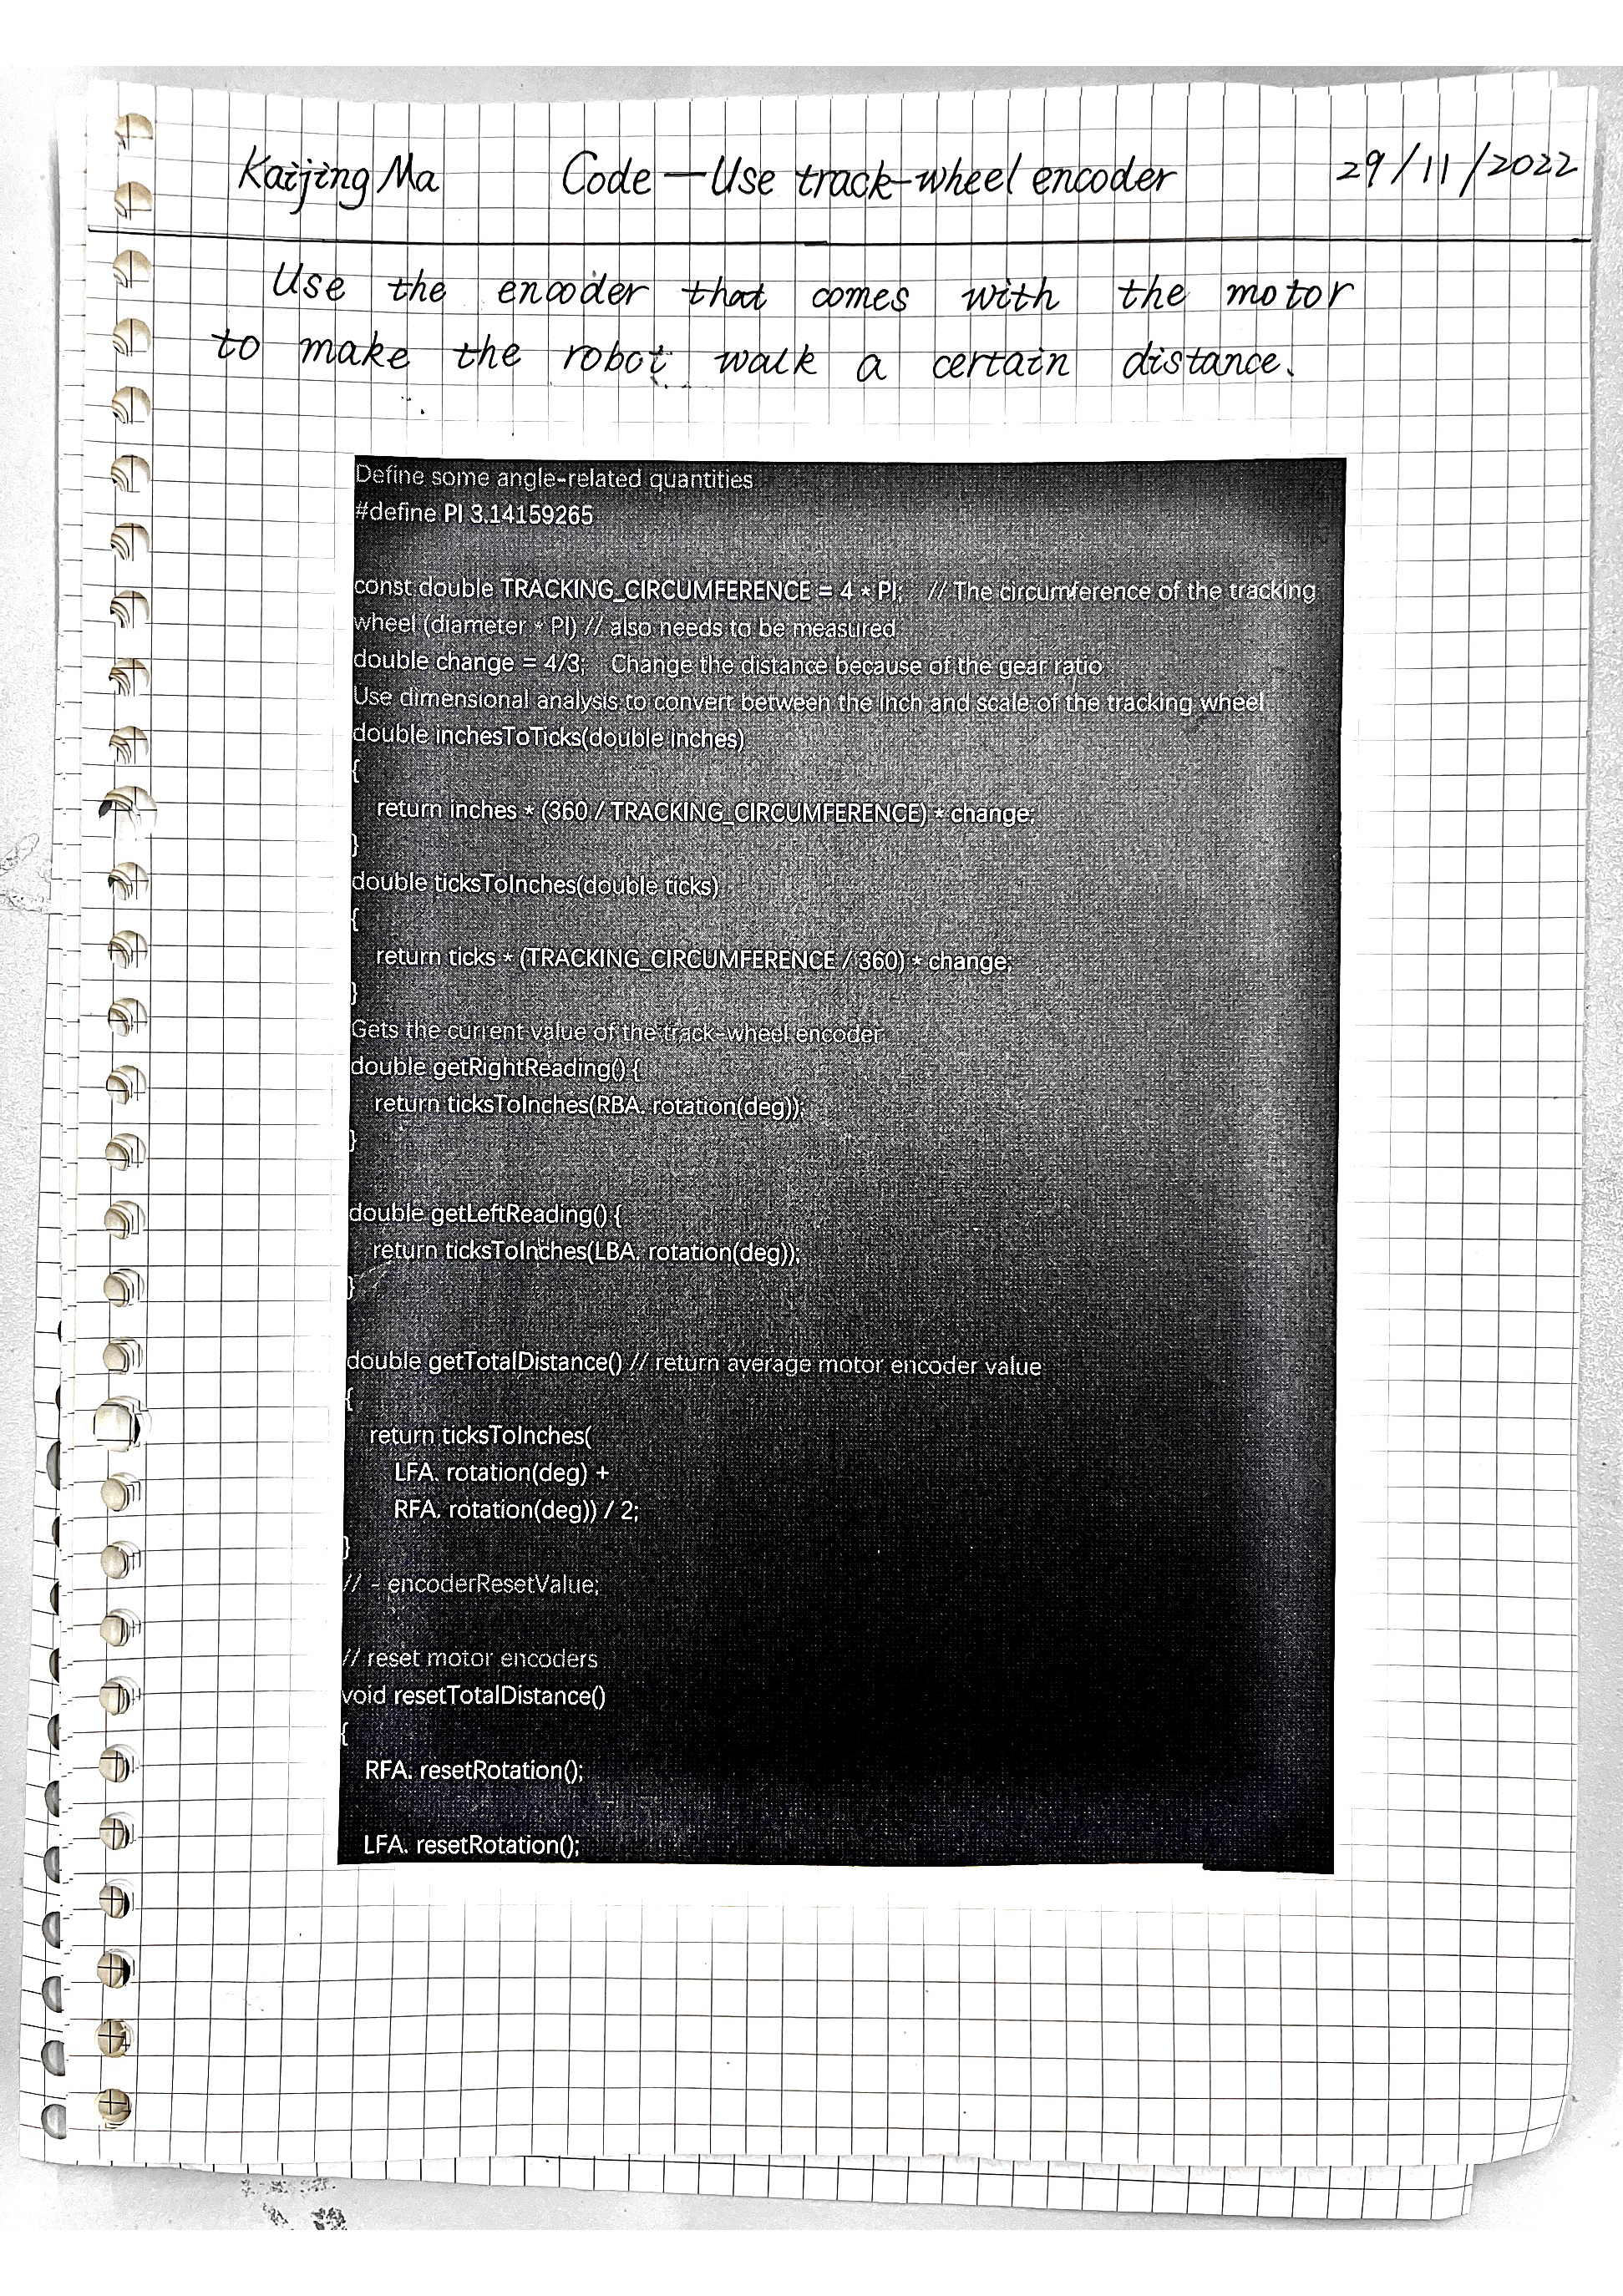 Kaijing Ma Code—Use track-wheel encoder 29/11/2022
Use the encoder that comes with the motor
to make the robot walk a certain distance.
Define some angle-related quantities
#define PI 3.14159265
const double TRACKING_CIRCUMFERENCE = 4 * PI; // The circumference of the tracking
wheel (diameter * PI) // also needs to be measured
double change = 4/3; Change the distance because of the gear ratio
Use dimensional analysis to convert between the inch and scale of the tracking wheel
double inchesToTicks(double inches)
{
return inches * (360 / TRACKING_CIRCUMFERENCE) * change;
}
double ticksToInches(double ticks)
{
return ticks * (TRACKING_CIRCUMFERENCE / 360) * change;
}
Gets the current value of the track-wheel encoder
double getRightReading() {
return ticksToInches(RBA. rotation(deg));
}
double getLeftReading() {
return ticksToInches(LBA. rotation(deg));
}
double getTotalDistance() // return average motor encoder value
{
return ticksToInches(
LFA. rotation(deg) +
RFA. rotation(deg)) / 2;
}
// - encoderResetValue;
// reset motor encoders
void resetTotalDistance()
{
RFA. resetRotation();
LFA. resetRotation();